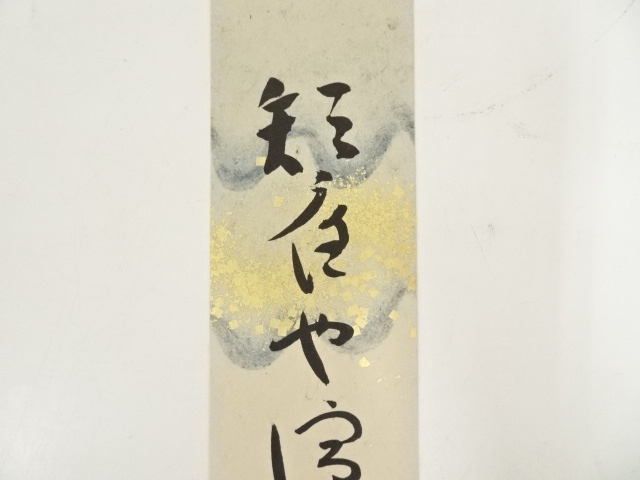 短夜や